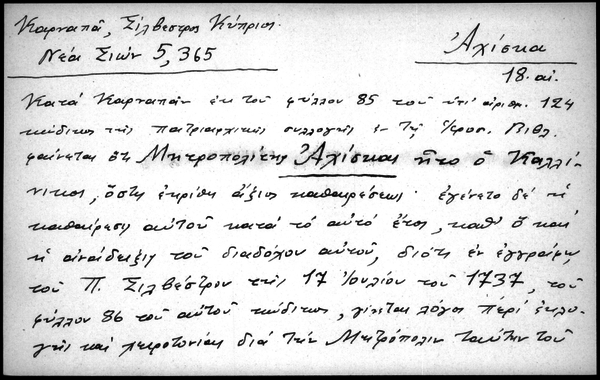 Καρναπᾶ, Σίλβεστρος Κύπριος.
Νέα Σιών 5, 365
Ἀχίσκα
18. αἰ.
Κατά Καρναπᾶν ἐκ τοῦ φύλλου 85 τοῦ ὑπ' ἀριθμ. 124
κώδικος τῆς πατριαρχικῆς συλλογῆς ἐν τῇ Ἱεροσ. Βιβλ.
φαίνεται ὅτι Μητροπολίτης Ἀχίσκας ἦτο ὁ Καλλί-
νικος, ὅστις ἐκρίθη ἄξιος καθαιρέσεως· ἐγένετο δέ ἡ
καθαίρεσις αὐτοῦ κατά τό αὐτό ἔτος, καθ' ὅ καί
ἡ ἀνάδειξις τοῦ διαδόχου αὐτοῦ, διότι ἐν ἐγγράφῳ
τοῦ Π. Σιλβέστρου τῆς 17 Ἰουλίου τοῦ 1737, τοῦ
φύλλου 86 τοῦ αὐτοῦ κώδικος, γίνεται λόγος περί ἐκλο-
γῆς καί χειροτονίας διά τήν Μητρόπολιν ταύτην τοῦ